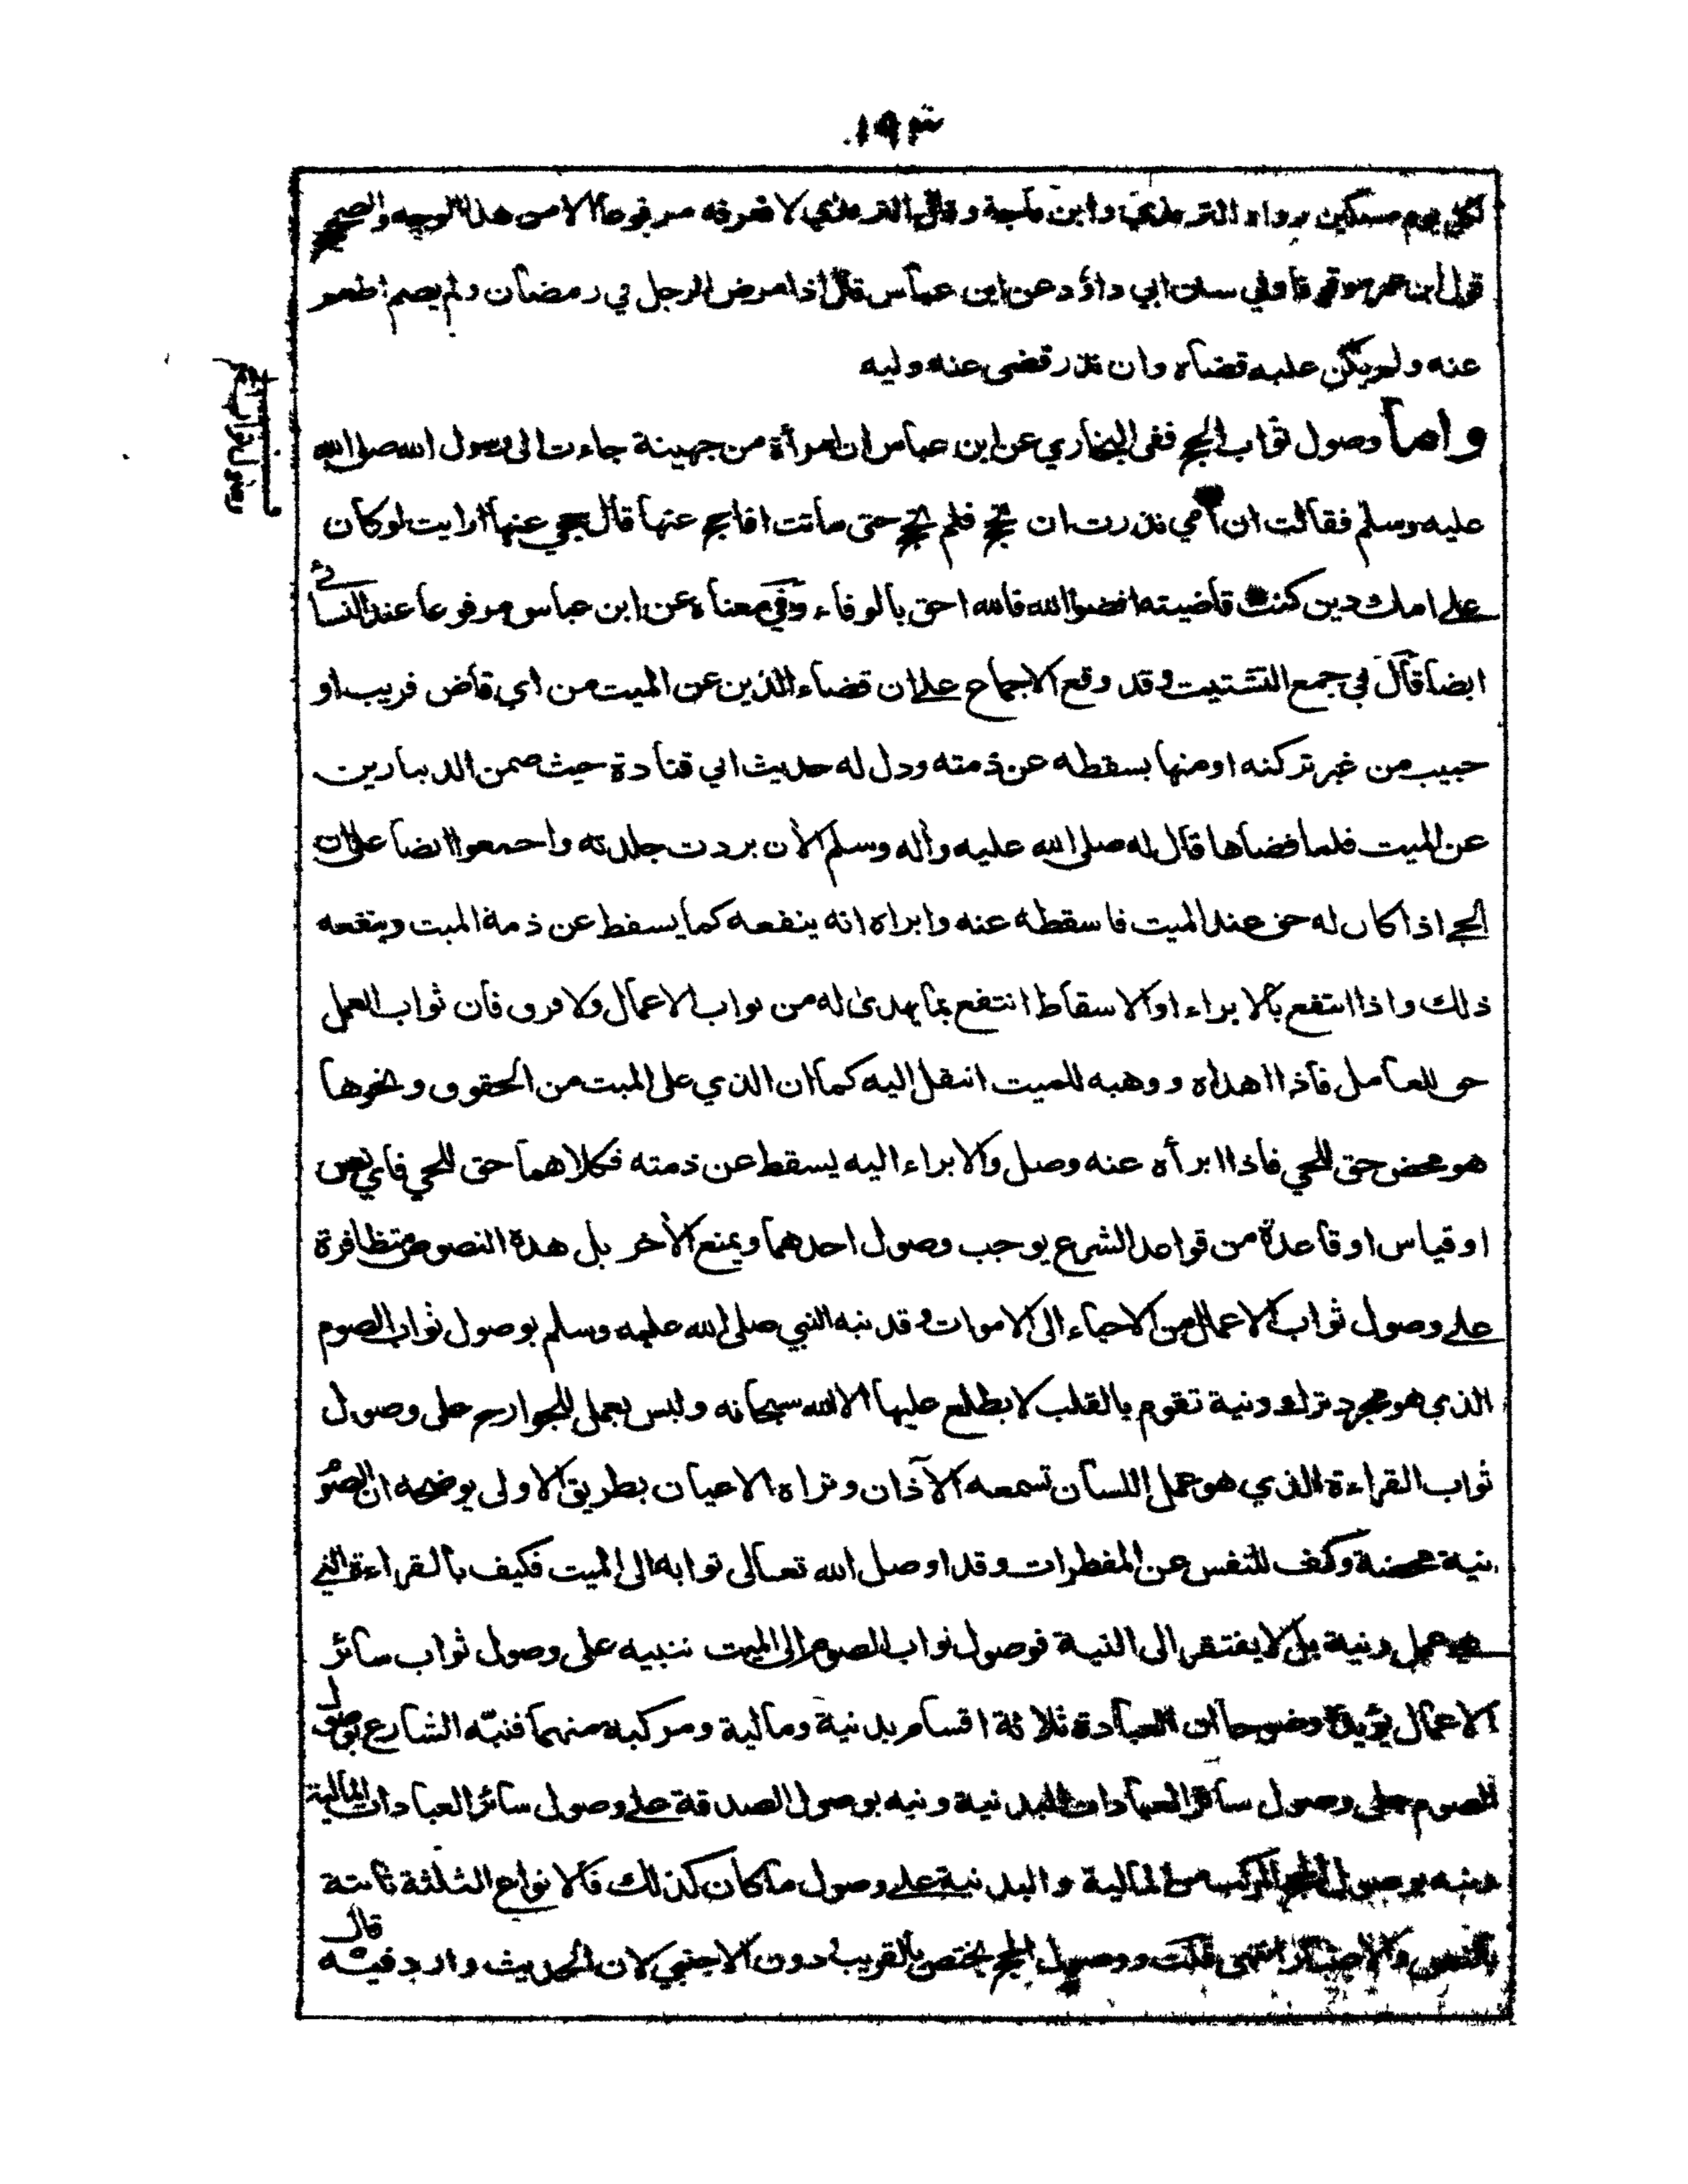 ١٩٣
لكل يوم مسكين رواه الترمذي وابن ماجة وقال الترمذي لا نعرفه مرفوعا الا من هذا الوجه والصحيح
قول ابن عمر موقوفا وفي سنن ابي داؤد عن ابن عباس قال اذا مرض الرجل في رمضان ولم يصم اطعم
عنه ولم يكن عليه قضاء وان نذر قضى عنه وليه
واما وصول ثواب الحج ففى البخاري عن ابن عباس ان امرأة من جهينة جاءت الى رسول الله صلى الله
عليه وسلم فقالت ان امي نذرت ان تحج فلم تحج حتى ماتت افاحج عنها قال حجي عنها ارايت لو كان
على امك دين كنت قاضيته اقضوا الله فالله احق بالوفاء وفي معناه عن ابن عباس مرفوعا عند النسائي
ايضا قال في جمع التشتيت وقد وقع الاجماع على ان قضاء الدين عن الميت من اي قاض قريب او
حبيب من غير تركته او منها يسقطه عن ذمته ودل له حديث ابي قتادة حيث ضمن الدينارين
عن الميت فلما قضاها قال له صلى الله عليه وآله وسلم الأن بردت جلدته واجمعوا ايضا على ان
الحي اذا كان له حق عند الميت فاسقطه عنه وابراه انه ينفعه كما يسقط عن ذمة الميت وينفعه
ذلك واذا انتفع بالابراء او الاسقاط انتفع بما يهدى له من ثواب الاعمال ولا فرق فان ثواب العمل
حق للعامل فاذا اهداه ووهبه للميت انتقل اليه كما ان الذي على الميت من الحقوق ونحوها
هو محض حق للحي فاذا ابرأه عنه وصل والابراء اليه يسقط عن ذمته فكلاهما حق للحي فاي نص
او قياس او قاعدة من قواعد الشرع يوجب وصول احدهما ويمنع الأخر بل هذه النصوص متظافرة
على وصول ثواب الاعمال من الاحياء الى الاموات وقد نبه النبي صلى الله عليه وسلم بوصول ثواب الصوم
الذي هو مجرد ترك ونية تقوم بالقلب لا يطلع عليها الا الله سبحانه وليس بعمل للجوارح على وصول
ثواب القراءة الذي هو عمل اللسان تسمعه الآذان وتراه الاعيان بطريق الاولى يوضحه ان الصوم
نية محضة وكف للنفس عن المفطرات وقد اوصل الله تعالى ثوابه الى الميت فكيف بالقراءة التي
هو عمل ونية بل لا يفتقر الى النية فوصول ثواب الصوم الى الميت تنبيه على وصول ثواب سائر
الاعمال يؤيده وضوحا ان العبادة ثلاثة اقسام بدنية ومالية ومركبة منهما فنبّه الشارع بوصول
الصوم على وصول سائر العبادات البدنية ونبه بوصول الصدقة على وصول سائر العبادات المالية
ونبه بوصول الحج المركب من المالية والبدنية على وصول ما كان كذلك فالانواع الثلثة ثابتة
بالنص والاعتبار انتهى قلت ووصول الحج يختص بالقريب دون الاجنبي لان الحديث وارد فيه قال